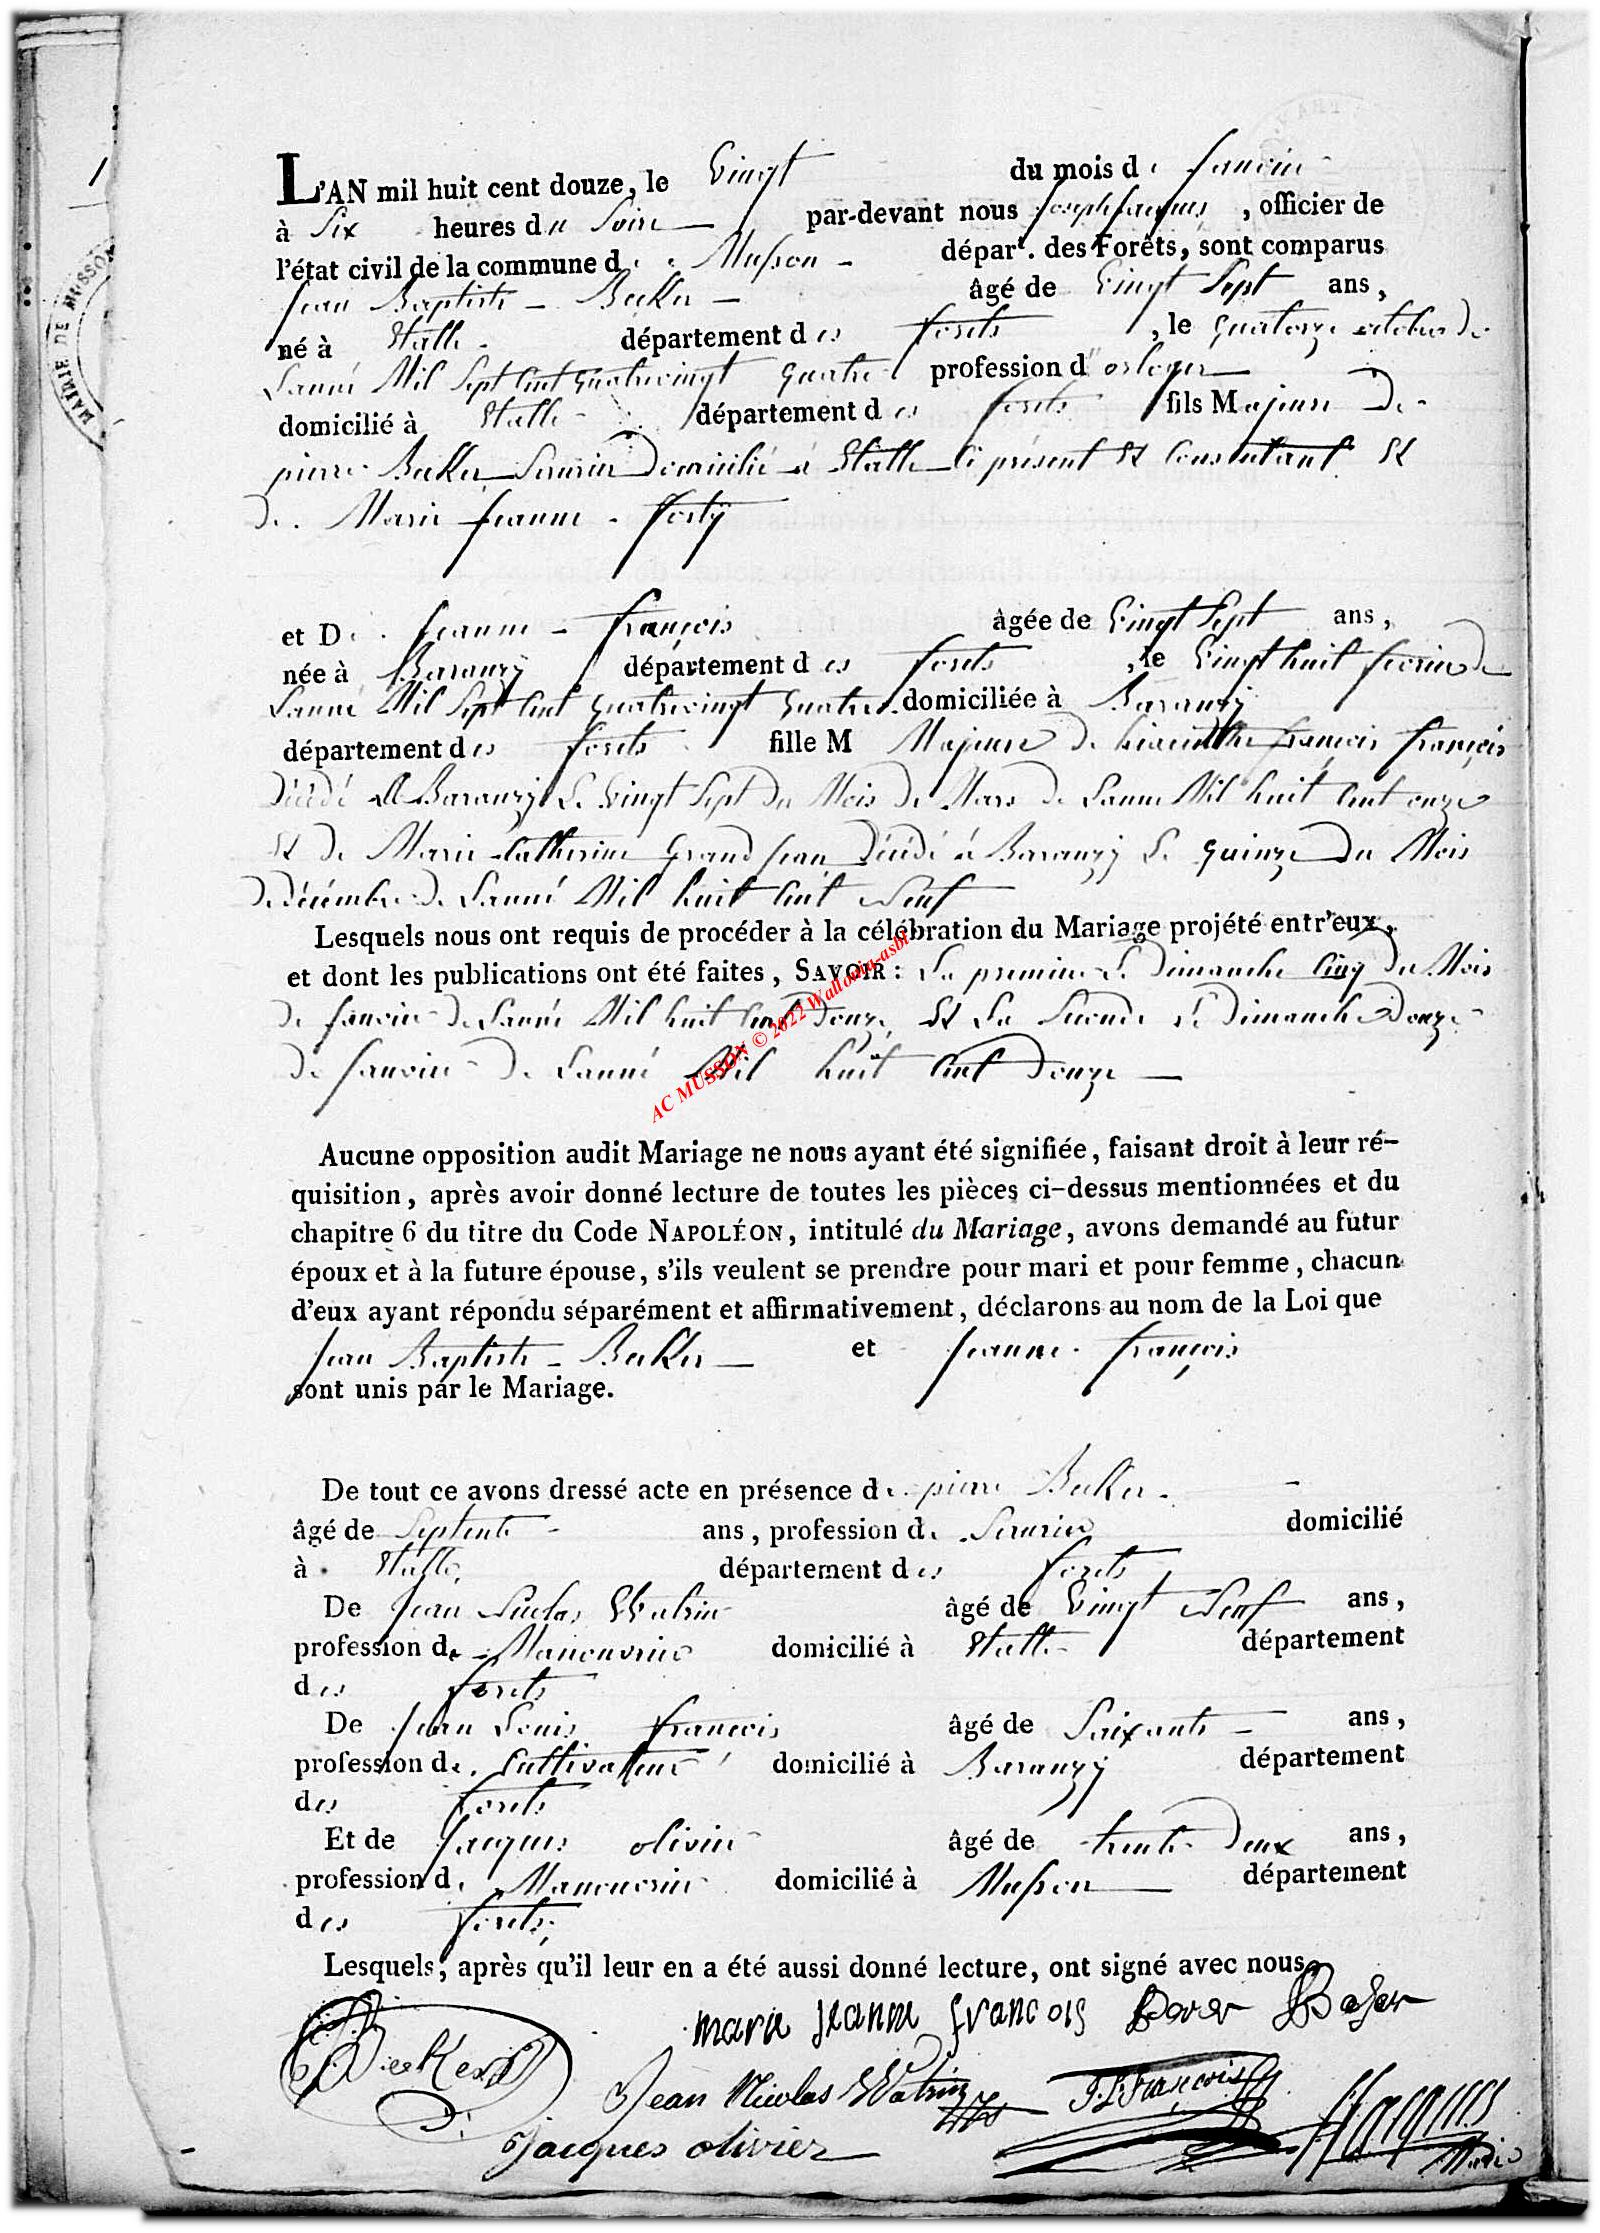 L'AN mil huit cent douze, le Vingt du mois de Janvier
à Six heures du Soire par-devant nous Joseph Jacques, officier de
l'état civil de la commune de Musson dépar<sup>t</sup>. des Forêts, sont comparus
Jean Baptiste Becker âgé de Vingt Sept ans,
né à Halle département des forets, le quatorze octobre de
Lanné Mil Sept Cent quatrevingt quatre profession d'orloger
domicilié à Halle département des forets fils Majeure De
pierre Becker Serurier Domicilié a Halle Ci présent Et Consentant Et
De Marie Jeanne
et De Jeanne françois âgée de Vingt Sept ans,
née à Baranzÿ département des forets, le Vingt huit fevrier de
Lanné Mil Sept Cent quatrevingt quatre domiciliée à Baranzÿ
département des forets fille M Majeure de hiacinthe françois françois
Décédé A Baranzÿ Le Vingt Sept Du Mois De Mars De Lanne Mil huit Cent onze
Et De Marie Catherine Grand Jean Décédé a Baranzÿ Le quinze Du Mois
De décembre De Lanné Mil huit Cent Neuf
Lesquels nous ont requis de procéder à la célébration du Mariage projété entr'eux,
et dont les publications ont été faites, SAVOIR: La premiere Le Dimanche Cinq Du Mois
De Janvier De Lanné Mil huit Cent Douze Et La Seconde Le Dimanche Douze
De Janvier De Lanné Mil huit Cent Douze
AC MUSSON © 2022 Wallonia-asbl
Aucune opposition audit Mariage ne nous ayant été signifiée, faisant droit à leur ré-
quisition, après avoir donné lecture de toutes les pièces ci-dessus mentionnées et du
chapitre 6 du titre du Code NAPOLÉON, intitulé du Mariage, avons demandé au futur
époux et à la future épouse, s'ils veulent se prendre pour mari et pour femme, chacun
d'eux ayant répondu séparément et affirmativement, déclarons au nom de la Loi que
Jean Baptiste Becker et Jeanne françois
sont unis par le Mariage.
De tout ce avons dressé acte en présence de pierre Becker
âgé de Septente ans, profession de Serurier domicilié
à Halle département des forets
De Jean Nicolas Watrin âgé de Vingt Neuf ans,
profession de Manouvrier domicilié à Halle département
des forets
De Jean Louis françois âgé de Soixante ans,
profession de Cultivateur domicilié à Baranzÿ département
des forets
Et de Jacques olivier âgé de trente Deux ans,
profession de Manouvrier domicilié à Musson département
des forets
Lesquels, après qu'il leur en a été aussi donné lecture, ont signé avec nous.
marie jeanne francois
Becker
Jean Nicolas Watrin JLFrançois JJacques
Jacques olivier Maire
MAIRIE DE MUSSON